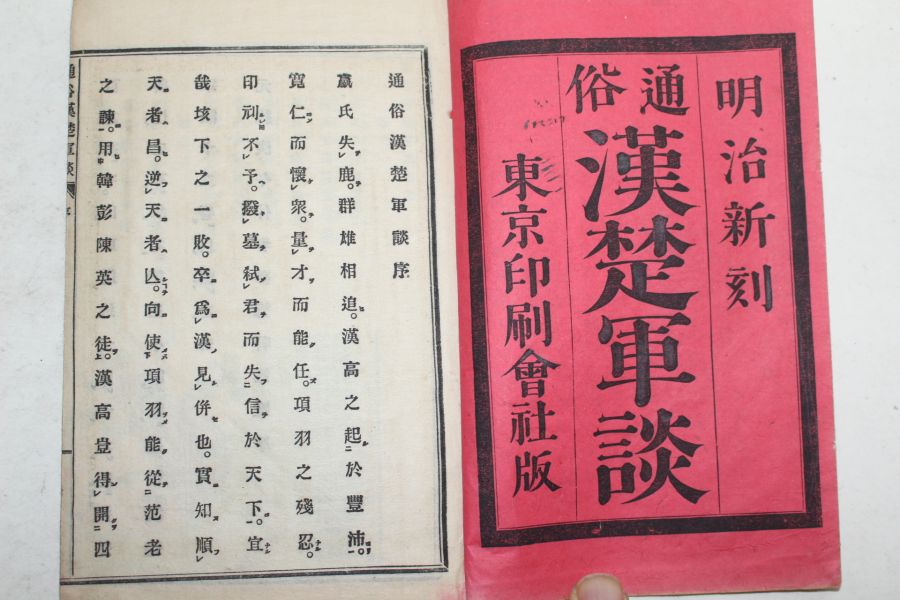 明治新刻
通俗
漢楚軍談
東京印刷會社版
通俗漢楚軍談序
嬴氏失鹿。群雄相追。漢高之起於豐沛。
寬仁而懷衆。量才而能任。項羽之殘忍。
印刓不予。撥墓弑君而失信於天下。宜
哉垓下之一敗。卒爲漢見併也。實知順
天者昌。逆天者亾。向使項羽能從范老
之諫。用韓彭陳英之徒。漢高豈得開四
通俗漢楚軍談 序